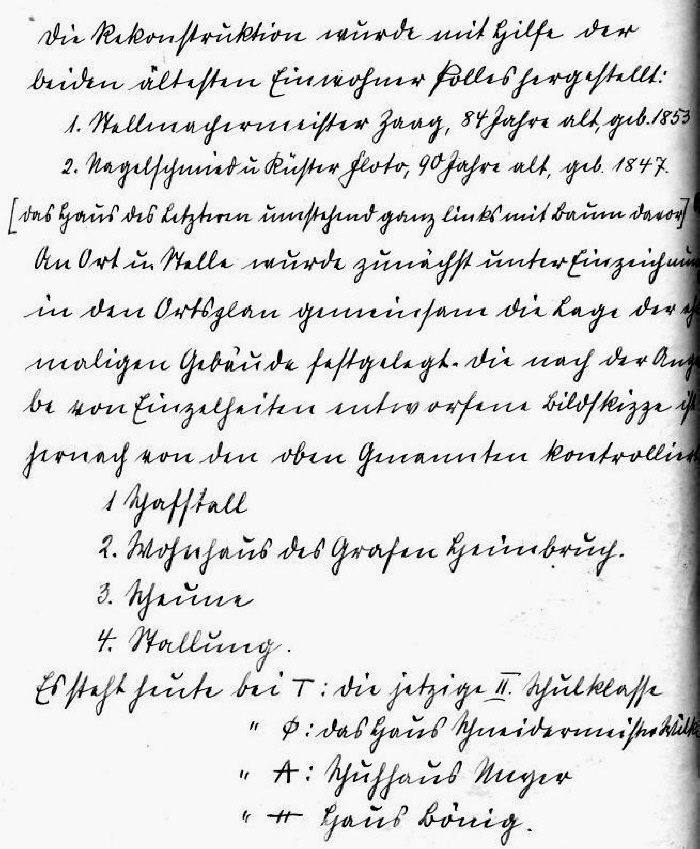 Die Rekonstruktion wurde mit Hilfe der
beiden ältesten Einwohner Polles hergestellt:
1. Stellmachermeister Zaag, 84 Jahre alt, geb. 1853
2. Nagelschmied u Küster Floto, 90 Jahre alt, geb. 1847.
[das Haus des Letzteren umstehend ganz links mit Baum davor]
An Ort u Stelle wurde zunächst unter Einzeichnun
in den Ortsplan gemeinsam die Lage der eh
maligen Gebäude festgelegt. Die nach der Anga
be von Einzelheiten entworfene Bildskizze ist
hernach von den oben Genannten kontrolliert
1 Schafstall
2. Wohnhaus des Grafen Heimbruch.
3. Scheune
4. Stallung.
Es steht heute bei T: die jetzige II. Schulklasse
" Ø: das Haus Schneidermeister
" A: Schuhhaus Meyer
" H Haus Bönig.